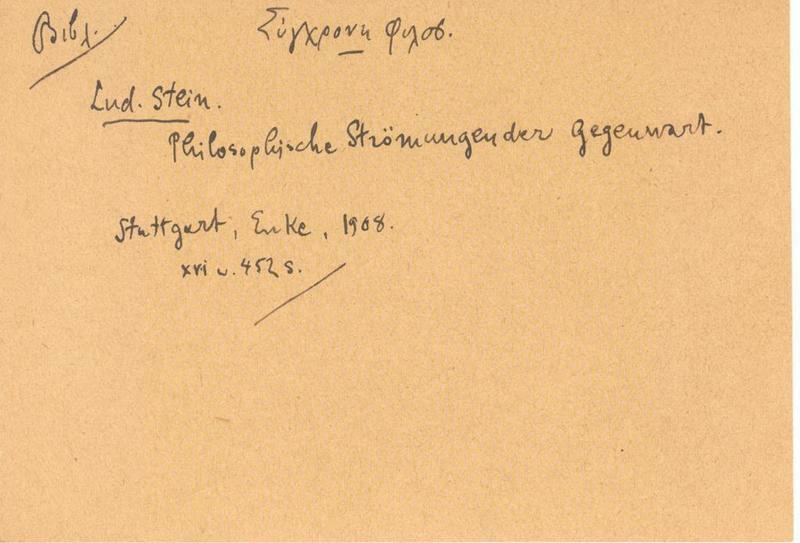 Βιβλ. Σύγχρονη Φιλοσ.
Lud. Stein.
Philosophische Strömungen der Gegenwart.
Stuttgart, Enke, 1908.
xvi u. 452 S.